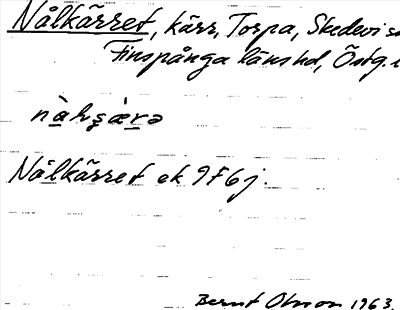 Nålkärret, kärr, Torpa, Skedevi s
Finspånga läns hd, Östg.
nàhʂæ̀rə
Nålkärret ek 9F6j.
Bernt Olsson 1963.